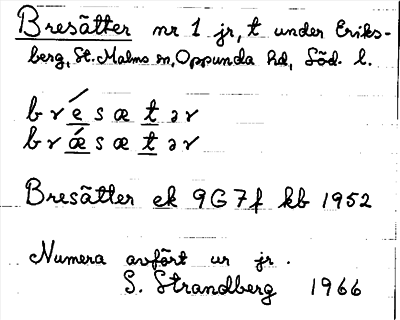 Bresätter nr 1 jr, t under Eriks-
berg, St. Malms sn, Oppunda hd, Söd. l.
br é s æ t ə r
br ǽ s æ t ə r
Bresätter ek 9G7f kb 1952
Numera avfört ur jr.
S. Strandberg 1966